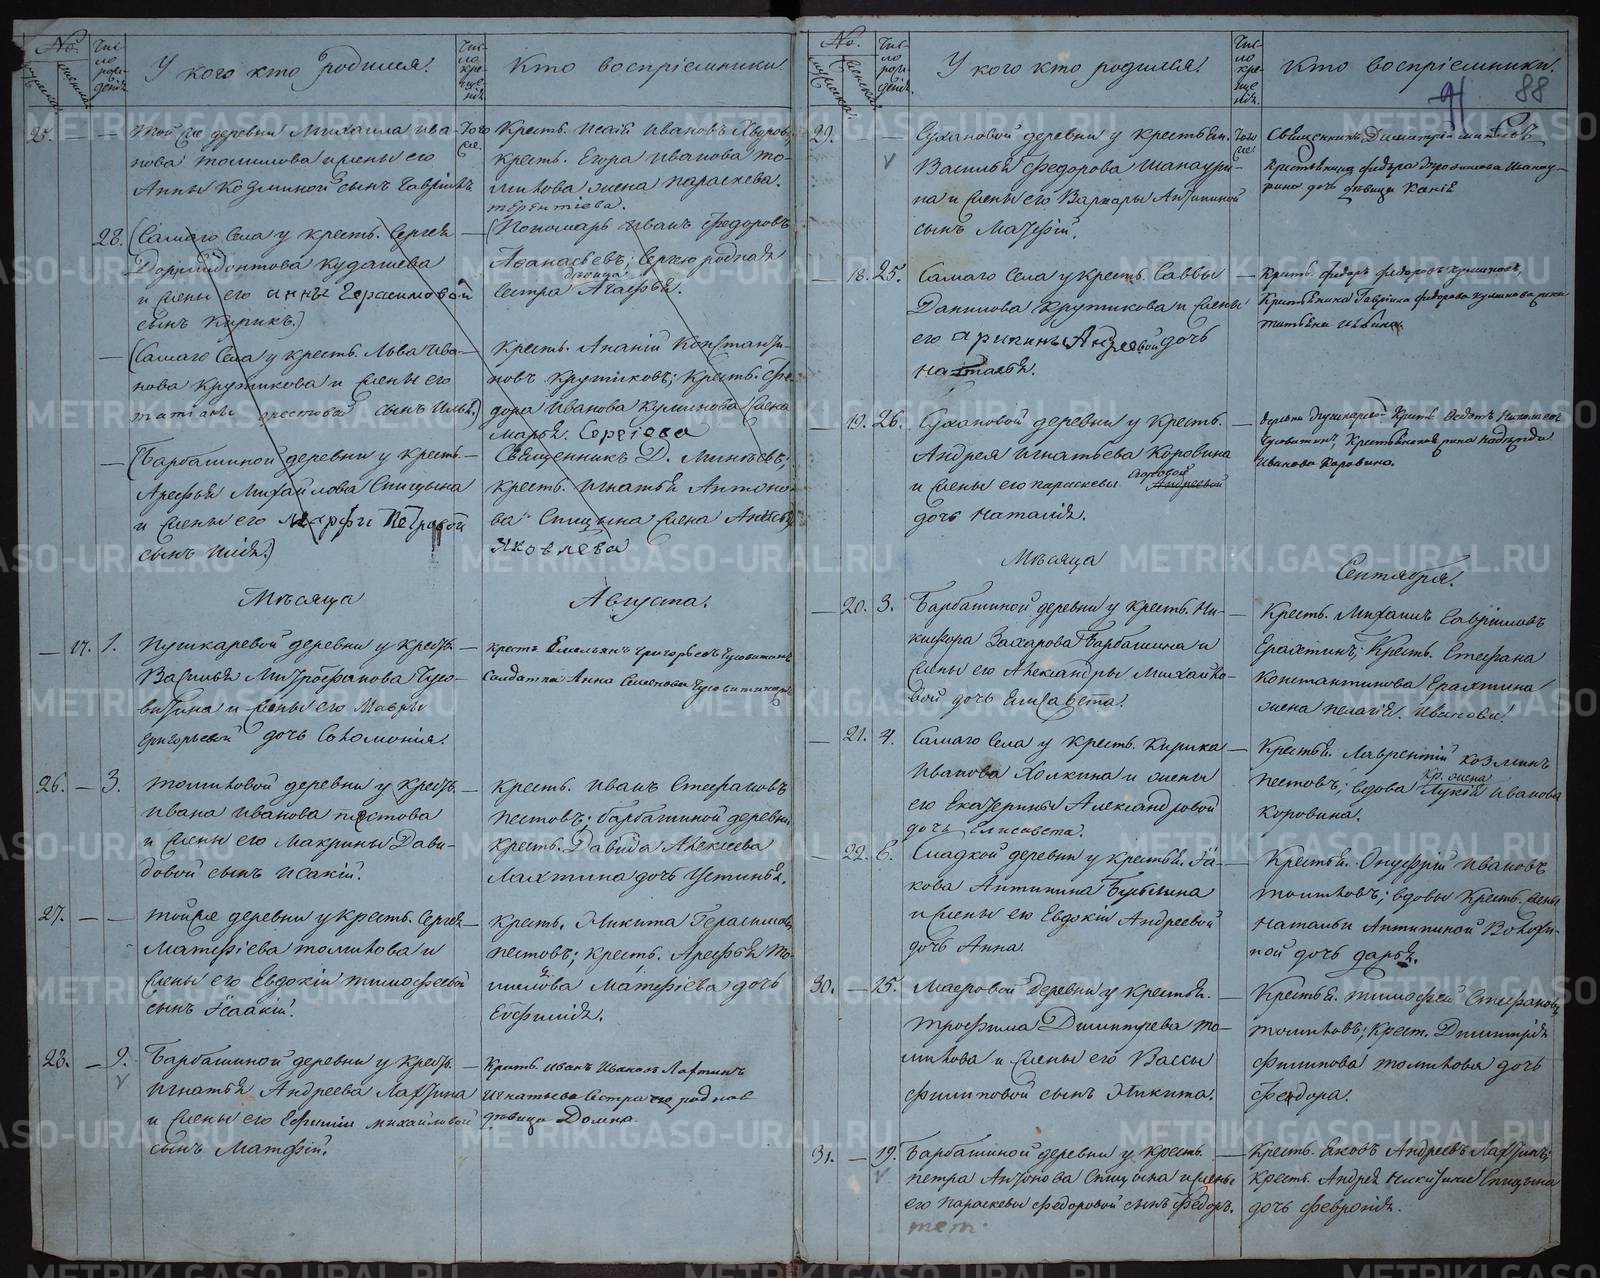 №.
Чис-
ло
рож-
денiя.
У кого кто родился.
Чис-
ло
кре-
щенiя.
Кто воспрiемники.
25. — — Той же деревни Михаила Ива-
нова Томилова и жены его
Анны Козминой сынъ Гаврiилъ
Того
же.
Крестъ. Исаiй Ивановъ
крест. Егора Иванова То-
милова жена Параскева.
Терентiева.
28. (Самаго Села у крестъ. Сергея
Кудашева
и жены его Анны Герасимовой
сынъ Кирикъ.)
(Пономарь Иванъ Федоровъ
Афанасьевъ; Сергею родная
сестра девица Агафья.
— (Самаго Села у крестъ. Льва Ива-
нова Крутикова и жены его
Татiаны сынъ Илья.)
Крестъ. Ананiй Константи-
новъ Крутиковъ; Крестъ. Фе-
дора Иванова Куликова жена
Марья. Сергiева
— (Барбашиной деревни у крестъ.
Арефья Михайлова Спицына
и жены его Марфы Петровой
сынъ Илiя.)
Священникъ Д. Минеевъ;
крест. Игнатья Антоно-
ва Спицына жена
Яковлева
Месяца Августа.
— 17. 1. Пушкаревой деревни у крестъ.
Василья Митрофанова Чусо-
витина и жены его Мавры
Григорьевой дочь Соломонiя.
крестъ. Емельянъ Григорьевъ Чусовитинъ
Солдатка Анна Семенова Чусовитина
26. — 3. Томиловой деревни у крестъ.
Ивана Иванова Пестова
и жены его Макрины Дави-
довой сынъ Исакiй.
Крестъ. Иванъ Стефановъ
Пестовъ; Барбашиной деревни
крестъ. Давида Алексеева
Лахтина дочь Устинья.
27. — — Той же деревни у крестъ. Сергея
Матфiева Томилова и
жены его Евдокiи Тимофеевой
сынъ Iсаакiй.
Крестъ. Никита Герасимовъ
Пестовъ; крестъ. Арефья То-
милова Матфiева дочь
Евфимiя.
28. — 9. Барбашиной деревни у крестъ.
Игнатья Андреева Лахтина
и жены его Ефимiи Михайловой
сынъ Матфiй.
Крестъ. Иванъ Ивановъ Лахтинъ
Игнатьева сестра его родная
девица Домна.
№.
Чис-
ло
рож-
денiя.
У кого кто родился.
Чис-
ло
кре-
ще-
нiя.
Кто воспрiемники.
91 88
29. — Сухановой деревни у крестьян.
Василья Федорова Шанаури-
на и жены его Варвары Антипиной
сынъ Матфiй.
Того
же
Священникъ Димитрiй Минеевъ
Крестьянина Федора Шанау-
рина дочь девица
— 18. 25. Самаго Села у крестъ. Саввы
Данилова Крутикова и жены
его Арины Андреевой дочь
Наталья.
Крестъ. Федоръ Федоровъ
Крестьянина Гаврiила Федорова Куликова жена
Татьяна
— 19. 26. Сухановой деревни у крестъ.
Андрея Игнатьева Коровина
и жены его Параскевы Андреевой
дочь Наталiя.
Деревни Пушкаревой Крестъ. Федотъ Николаевъ
Чусовитинъ, Крестьянская жена Надежда
Иванова Коровина.
Месяца Сентября.
— 20. 3. Барбашиной деревни у крестъ. Ни-
кифора Захарова Барбашина и
жены его Александры Михайло-
вой дочь Елисавета.
Крестъ. Михаилъ Гаврiиловъ
Ералтинъ; Крестъ. Стефана
Константинова Ералтина
жена Пелагiя. Иванова.
— 21. 4. Самаго Села у крестъ. Кирика
Иванова Холкина и жены
его Екатерины Александровой
дочь Елисавета.
Крестьян. Лаврентiй Козминъ
Пестовъ; вдова кр. жена Лукiя Иванова
Коровина.
— 22. 6. Гладкой деревни у крестьян. Iа-
кова Антипина
и жены его Евдокiи Андреевой
дочь Анна.
Крестьян. Онуфрiй Ивановъ
Томиловъ; вдовы крестъ. жены
Натальи Антипиной
ной дочь Дарья.
30. — 25. Маеровой деревни у крестьян.
Трофима Димитрiева То-
милова и жены его Вассы
Филиповой сынъ Никита.
Крестьян. Тимофей Стефановъ
Томиловъ; Крест. Димитрiя
Филипова Томилова дочь
Феодора.
31. — 19. Барбашиной деревни у крестъ.
Петра Антонова Спицына и жены
его Параскевы Федоровой сынъ Федоръ.
Крестъ. Яковъ Андреевъ Лахтинъ;
Крестъ. Андрея Никитина Спицына
дочь Феврония.